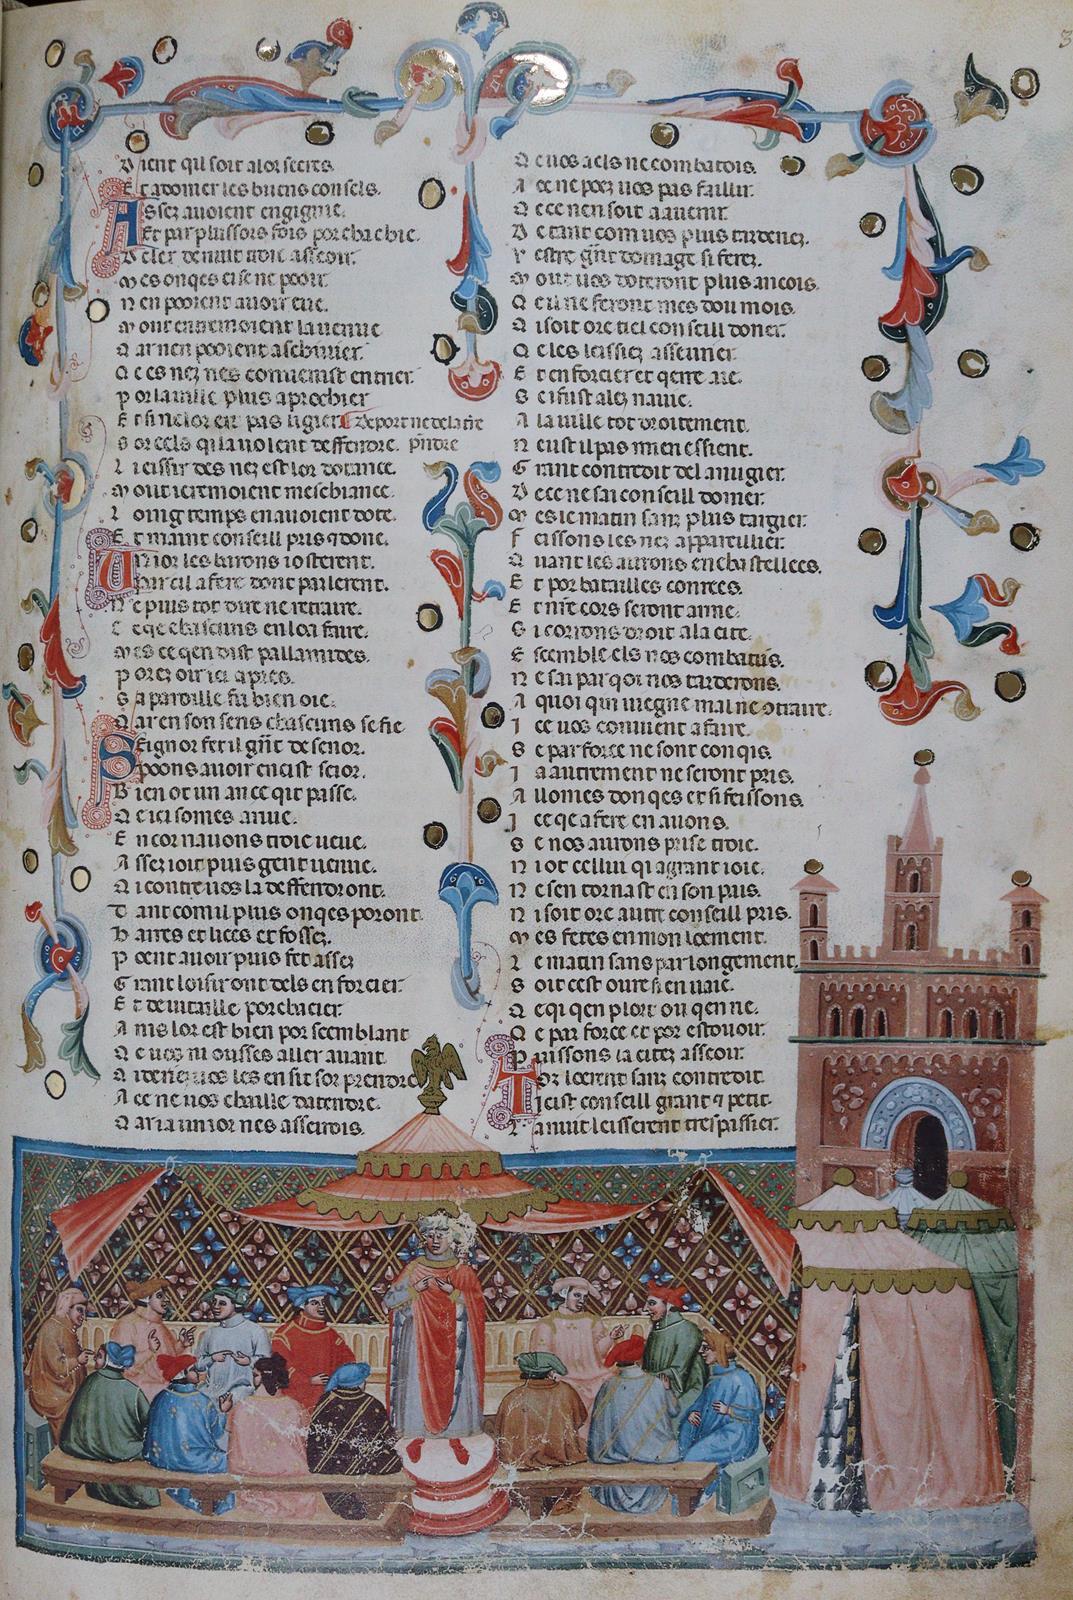 Vient qil soit alor secres.
Et adoner les buens consels.
Assez auoient engignie.
Et par pluissors fois porchachie.
De de nuit troie asseoir.
Mes onqes cis ne pooir
Nen pooient auoir
Mout cremoient la uenue
Qar nen pooient
Qe es nez nes conuenist entrer.
Por la uille plus aprochier
Et si nelor ert pas ligier
De port ne de la tre prndre
Sor cels qi la uolent deffendre.
Li eissir des nez est lor dotance.
Mout cremoient meschance.
Loing temps en auoient dote.
Et maint conseill pris 7 done.
Unior les barons iosterent.
Par cil afere dont parlerent.
Ne puis tot dire ne retraire.
Ce qe chascuns en loa faire.
Mes ce qen dist pallamides.
Porez oir ici apres.
Sa paroille fu bien oie.
Qar en son sens chascuns se fie
Seignor fet il gnt de senor.
Poons auoir en cist seior.
Bien ot un an ce qit passe.
Qe ici somes ariue.
Encor nauons troie ueue.
Assez ioit puis gent uenue.
Qi contre uos la deffendront.
Tant com il plus onqes poront.
Barres et lices et fossez.
Poent auoir puis fet assez
Grant loisir ont dels enforcier.
Et de uitaille porchacier.
Auis lor est bien por semblant
Qe uos ni osisses aller auant.
Qi deneuos les en sit sor prendre
A ce ne uos chaille datendre.
Qar ia un ior nes asseirois.
Qe uos a cels ne combatois.
A ce ne poez uos pas faillir.
Qe ce nen soit a auenir.
De tant com uos plus tarderiez.
Vestre gnt domage si ferez.
Mout uos doteront plus ancois.
Qeu ne feront mes dou mois.
Qi soit ore tiel conseill doner.
Qe les leissiez asseurer.
Et enforcier et qerre aie.
Se i fust alez nauie.
A la uille tot droitement.
Neust il pas mien essient.
Grant contredit del ariugier.
De ce ne sai conseill doner.
Mes le matin sanz plus targier.
Feissons les nez appareillier.
Quant les aurons enchastellees.
Et por batailles conrees.
Et nre cors seront arme.
Si corrons droit a la cite.
Esemble els nos combatus.
Ne sai par qoi nos tarderons.
A quoi qui uiegne mal ne contraire.
I ce uos couuient a faire.
Se par force ne sont conqis.
Ia autrement ne seront pris.
Auomes donqes et si feissons.
I ce qe a fere en auons.
Se nos aurons prise troie.
Ni ot cellui qi a grant ioie.
Ne sen tornast en son pais.
Ni soit ore autre conseill pris.
Mes feres en mon loement.
Le matin sans par longement.
Soit cest oure si en uaie.
Qe qi qen plort ou qen rie.
Qe par force et por estouoir.
Puissons la citez asseoir.
Tor loerent sanz contredit.
Icist conseill grant 7 petit.
La nuit leisserent trespasser.